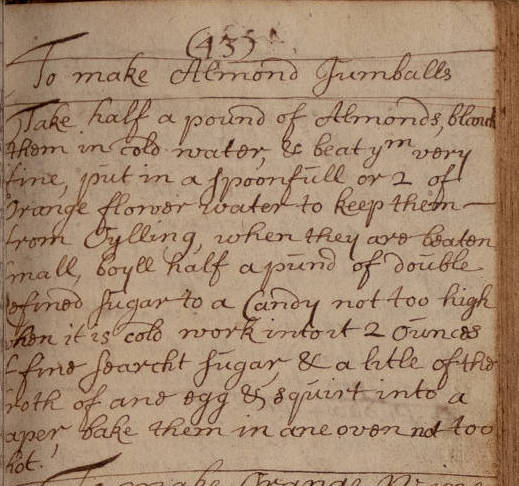 (435)
To make Almond Jumballs
Take half a pound of Almonds, blanch
them in cold water, & beat yᵐ very
fine, put in a spoonfull or 2 of
Orange flower water to keep them
from Oylling, when they are beaten
small, boyll half a pund of double
refined sugar to a Candy not too high
when it is cold work into it 2 ounces
of fine searcht sugar, & a litle of the
froth of ane egg & squirt into a
paper, bake them in ane oven not too
hot.
To make Orange